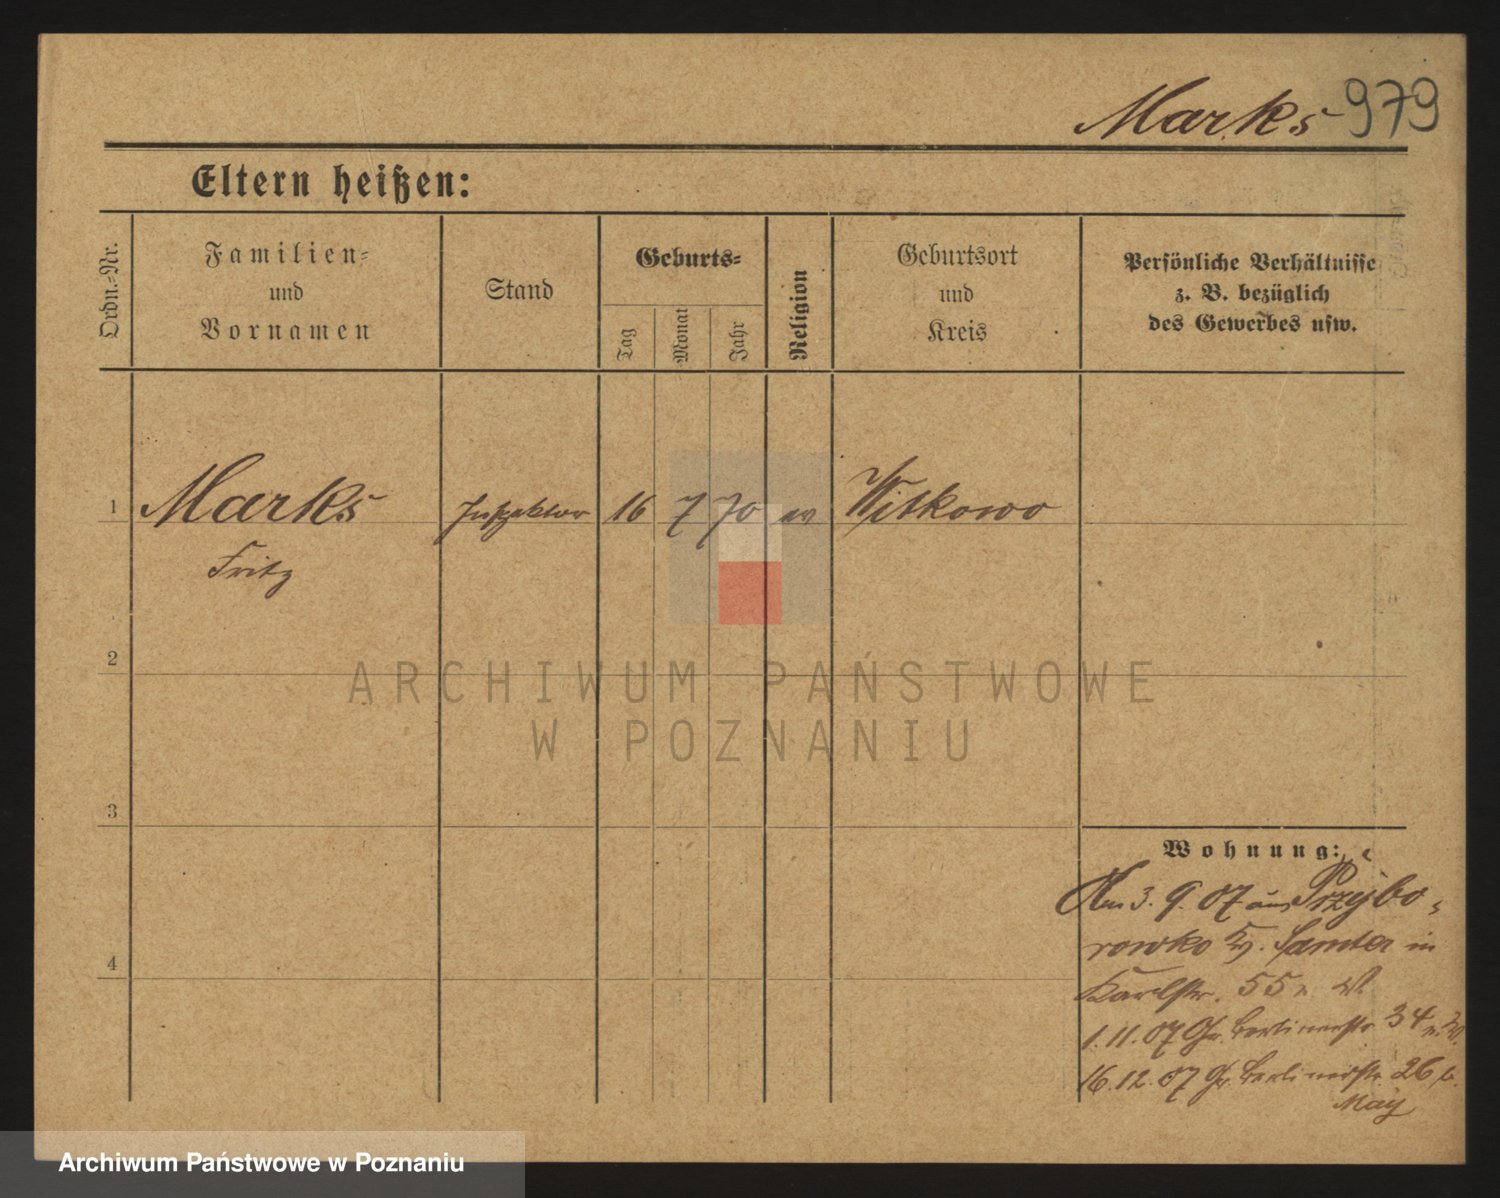 Marks 979
Eltern heißen:
Ordn.-Nr.
Familien-
und
Vornamen
Stand
Geburts-
Tag
Monat
Jahr
Religion
Geburtsort
und
Kreis
Persönliche Verhältnisse
z. B. bezüglich
des Gewerbes usw.
1 Marks Inspektor 16 7 70 ev Witkowo
Fritz
2
ARCHIWUM PAŃSTWOWE
W POZNANIU
3
Wohnung:
Am 3. 9. 07 aus Przybo-
rowko Kr. Samter in
Karlstr. 55
1.11.07 Gr. Berlinerstr 34
16.12.07 Gr. Berlinerstr. 26 b.
May
4
Archiwum Państwowe w Poznaniu